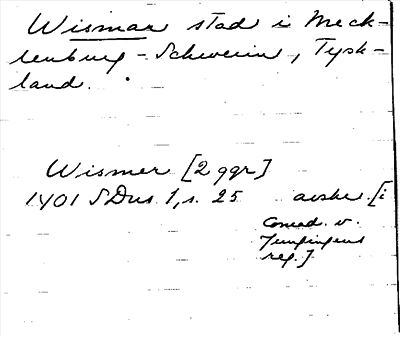 Wismar stad i Meck-
lenburg-Schwerin, Tysk-
land.
Wismer [2 ggr]
1401 SDns 1, s. 25 avskr. [i
Conrad v.
Jungingens
reg.]